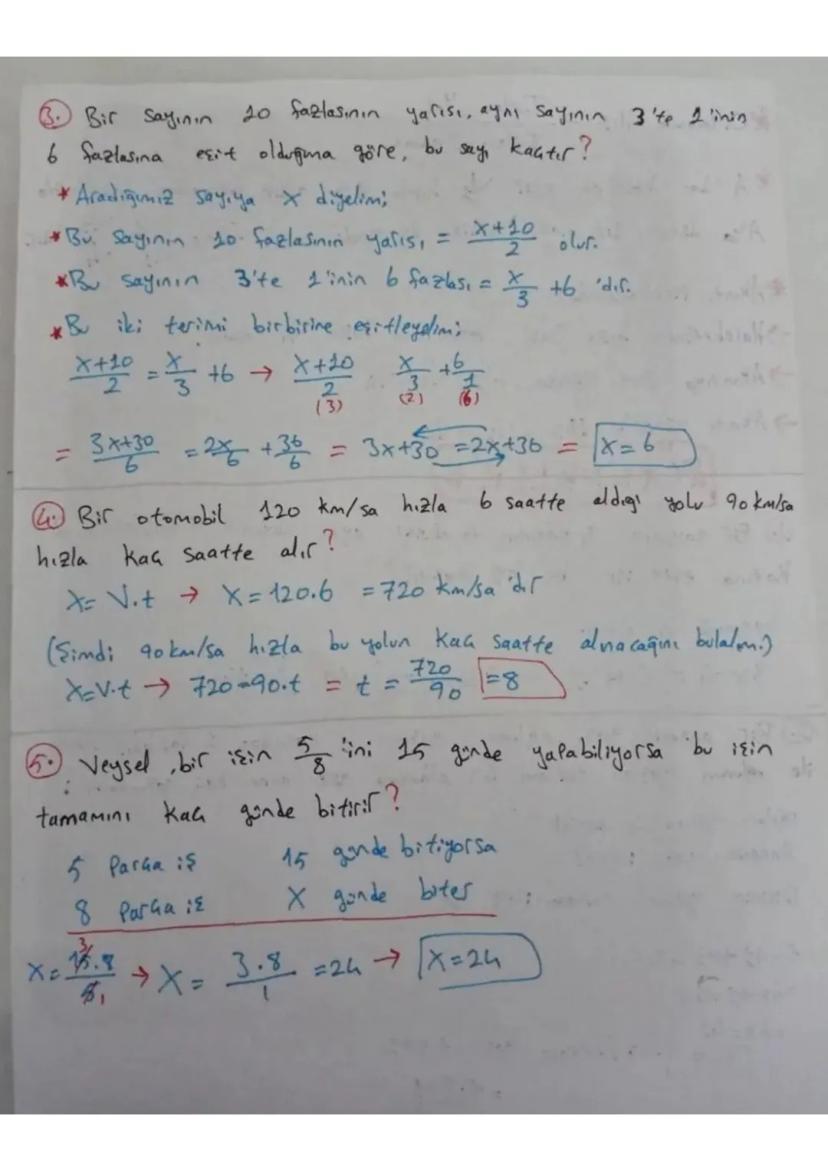 3. Bir sayının 10 fazlasının yarısı, aynı sayının 3'te 1'inin
6 fazlasına eşit olduğuna göre, bu sayı kaçtır?
* Aradığımız sayıya x diyelim;
* Bu sayının 10 fazlasının yarısı = x+10/2 olur.
* Bu sayının 3'te 1'inin 6 fazlası = x/3 +6 'dır.
* Bu iki terimi birbirine eşitleyelim;
x+10/2 = x/3 +6 → x+10/2 (3) x/3 (2) + 6/1 (6)
= 3x+30/6 = 2x/6 + 36/6 = 3x+30 = 2x+36 = x=6
4. Bir otomobil 120 km/sa hızla 6 saatte aldığı yolu 90 km/sa
hızla kaç saatte alır?
X= V.t → X=120.6 =720 km/sa 'dır
(Şimdi 90 km/sa hızla bu yolun kaç saatte alınacağını bulalım.)
X=V.t → 720=90.t = t = 720/90 =8
5. Veysel, bir işin 5/8 'ini 15 günde yapabiliyorsa bu işin
tamamını kaç günde bitirir?
5 parça iş 15 günde bitiyorsa
8 parça iş X günde biter
X= 15.8/5 3 1 → X= 3.8/1 =24 → X=24